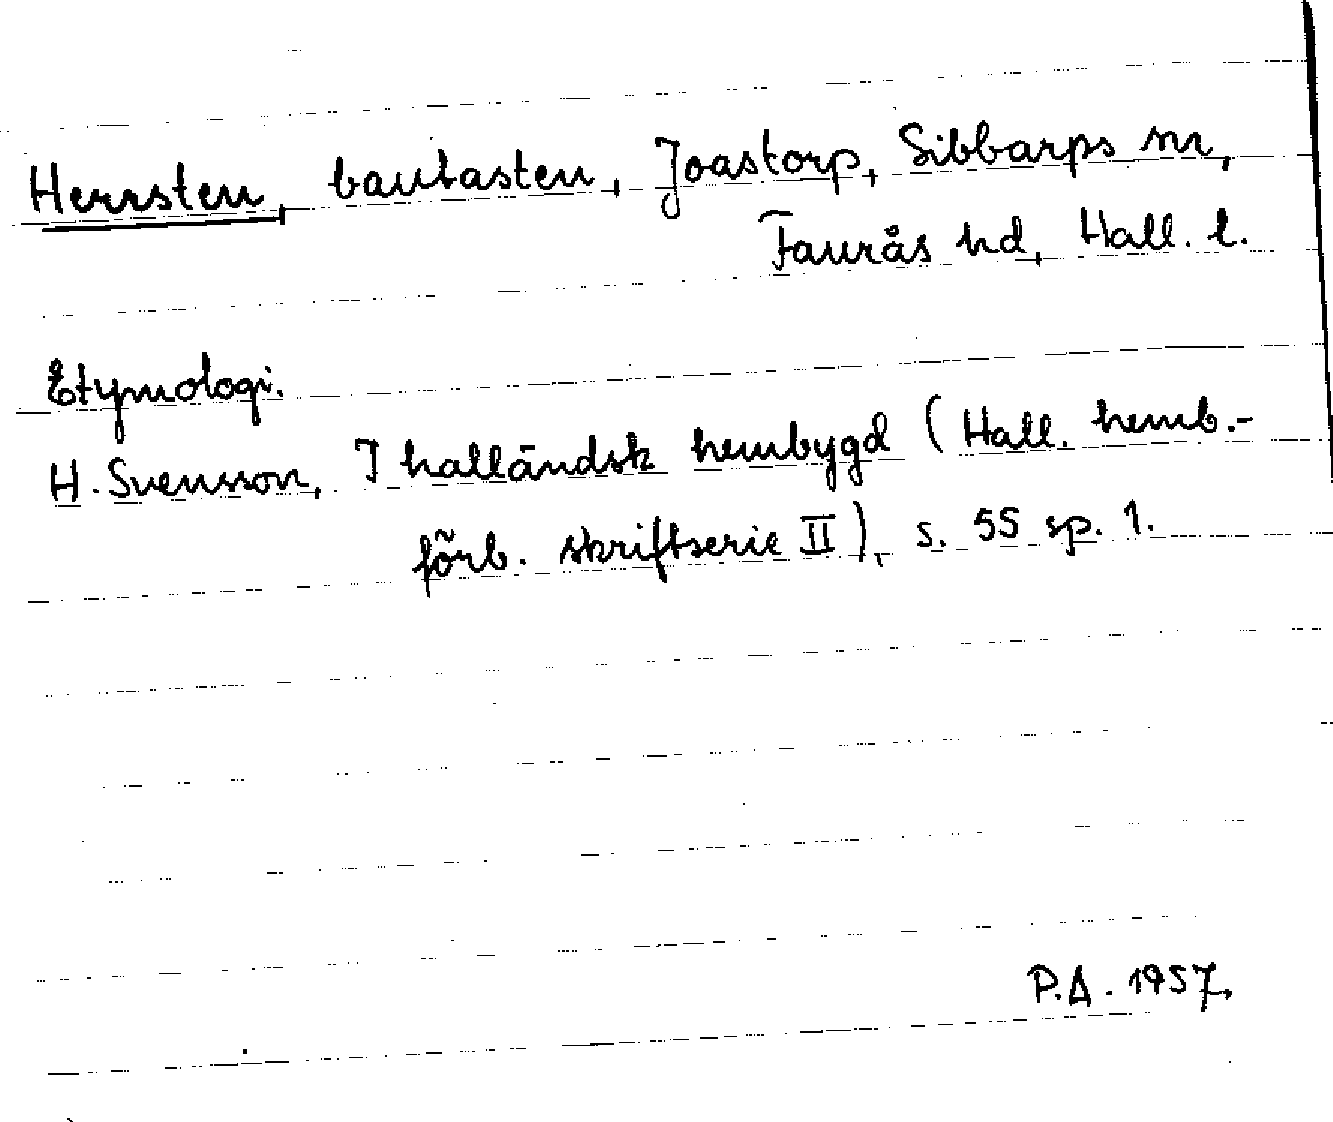 Herrsten, bautasten, Joastorp, Sibbarps sn,
Faurås hd, Hall. l.
Etymologi.
H. Svensson, I halländsk hembygd (Hall. hemb.-
förb. skriftserie II), s. 55 sp. 1.
P.A. 1957.